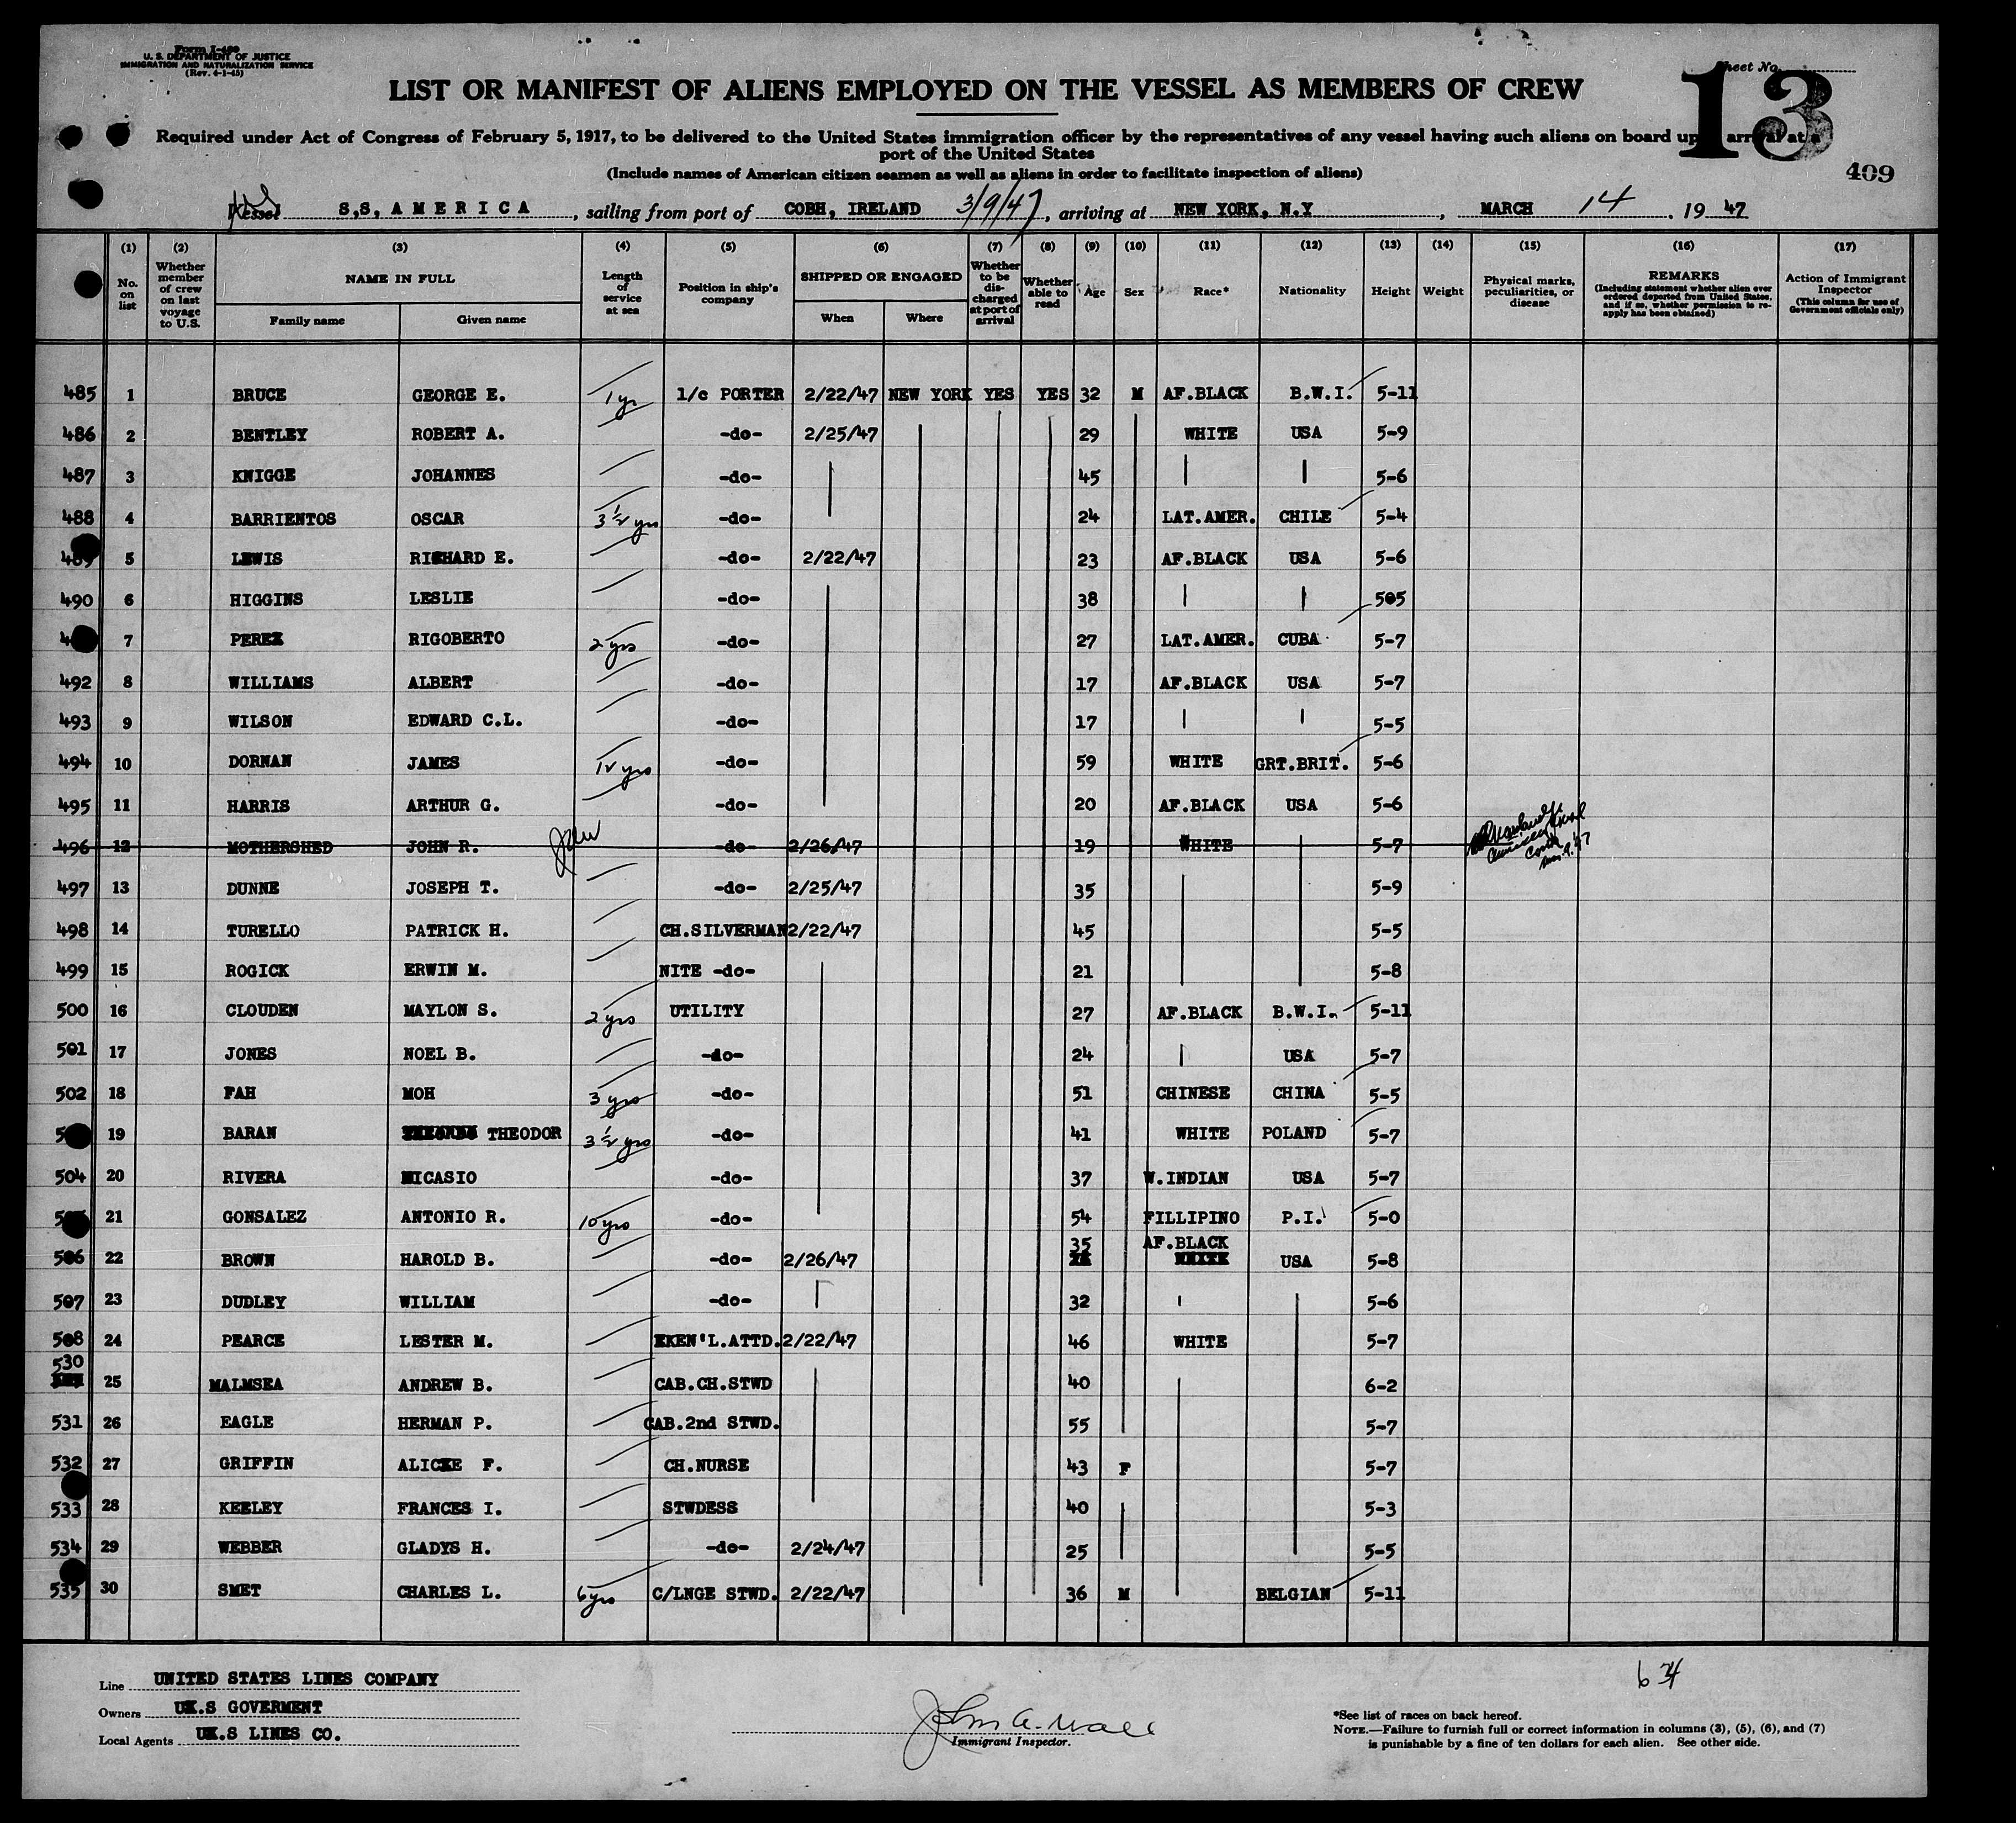 Form I-489
U. S. DEPARTMENT OF JUSTICE
IMMIGRATION AND NATURALIZATION SERVICE
(Rev. 4-1-45)
Sheet No.
13
LIST OR MANIFEST OF ALIENS EMPLOYED ON THE VESSEL AS MEMBERS OF CREW
Required under Act of Congress of February 5, 1917, to be delivered to the United States immigration officer by the representatives of any vessel having such aliens on board upon arrival at a
port of the United States
(Include names of American citizen seamen as well as aliens in order to facilitate inspection of aliens)
409
Vessel S,S, A M E R I C A , sailing from port of COBH, IRELAND 3/9/47, arriving at NEW YORK, N.Y , MARCH 14 , 19 47
(1) (2) (3) (4) (5) (6) (7) (8) (9) (10) (11) (12) (13) (14) (15) (16) (17)
No. on list Whether member of crew on last voyage to U.S. NAME IN FULL Length of service at sea Position in ship's company SHIPPED OR ENGAGED Whether to be discharged at port of arrival Whether able to read Age Sex Race* Nationality Height Weight Physical marks, peculiarities, or disease REMARKS (Including statement whether alien ever ordered deported from United States, and if so, whether permission to reapply has been obtained) Action of Immigrant Inspector (This column for use of Government officials only)
Family name Given name When Where
485 1 BRUCE GEORGE E. 1 yr 1/c PORTER 2/22/47 NEW YORK YES YES 32 M AF.BLACK B.W.I. 5-11
486 2 BENTLEY ROBERT A. -do- 2/25/47 29 WHITE USA 5-9
487 3 KNIGGE JOHANNES -do- 45 5-6
488 4 BARRIENTOS OSCAR 3 1/2 yrs -do- 24 LAT.AMER. CHILE 5-4
489 5 LEWIS RICHARD E. -do- 2/22/47 23 AF.BLACK USA 5-6
490 6 HIGGINS LESLIE -do- 38 505
7 PEREZ RIGOBERTO 2 yrs -do- 27 LAT.AMER. CUBA 5-7
492 8 WILLIAMS ALBERT -do- 17 AF.BLACK USA 5-7
493 9 WILSON EDWARD C.L. -do- 17 5-5
494 10 DORNAN JAMES 12 yrs -do- 59 WHITE GRT.BRIT. 5-6
495 11 HARRIS ARTHUR G. -do- 20 AF.BLACK USA 5-6
496 12 MOTHERSHED JOHN R. -do- 2/26/47 19 WHITE 5-7
497 13 DUNNE JOSEPH T. -do- 2/25/47 35 5-9
498 14 TURELLO PATRICK H. CH.SILVERMAN 2/22/47 45 5-5
499 15 ROGICK ERWIN M. NITE -do- 21 5-8
500 16 CLOUDEN MAYLON S. 2 yrs UTILITY 27 AF.BLACK B.W.I. 5-11
501 17 JONES NOEL B. -do- 24 USA 5-7
502 18 FAH MOH 3 yrs -do- 51 CHINESE CHINA 5-5
19 BARAN THEODOR 3 1/2 yrs -do- 41 WHITE POLAND 5-7
504 20 RIVERA NICASIO -do- 37 W.INDIAN USA 5-7
21 GONSALEZ ANTONIO R. 10 yrs -do- 54 FILLIPINO P.I. 5-0
506 22 BROWN HAROLD B. -do- 2/26/47 35 AF.BLACK WHITE USA 5-8
507 23 DUDLEY WILLIAM -do- 32 5-6
508 24 PEARCE LESTER M. KKEN'L.ATTD. 2/22/47 46 WHITE 5-7
530 25 MALMSEA ANDREW B. CAB.CH.STWD 40 6-2
531 26 EAGLE HERMAN P. CAB.2nd STWD. 55 5-7
532 27 GRIFFIN ALICE F. CH.NURSE 43 F 5-7
533 28 KEELEY FRANCES I. STWDESS 40 5-3
534 29 WEBBER GLADYS H. -do- 2/24/47 25 5-5
535 30 SMET CHARLES L. 6 yrs C/LNGE STWD. 2/22/47 36 M BELGIAN 5-11
Line UNITED STATES LINES COMPANY
Owners U.S GOVERMENT
Local Agents U.S LINES CO.
Immigrant Inspector.
*See list of races on back hereof.
NOTE.—Failure to furnish full or correct information in columns (3), (5), (6), and (7)
is punishable by a fine of ten dollars for each alien. See other side.